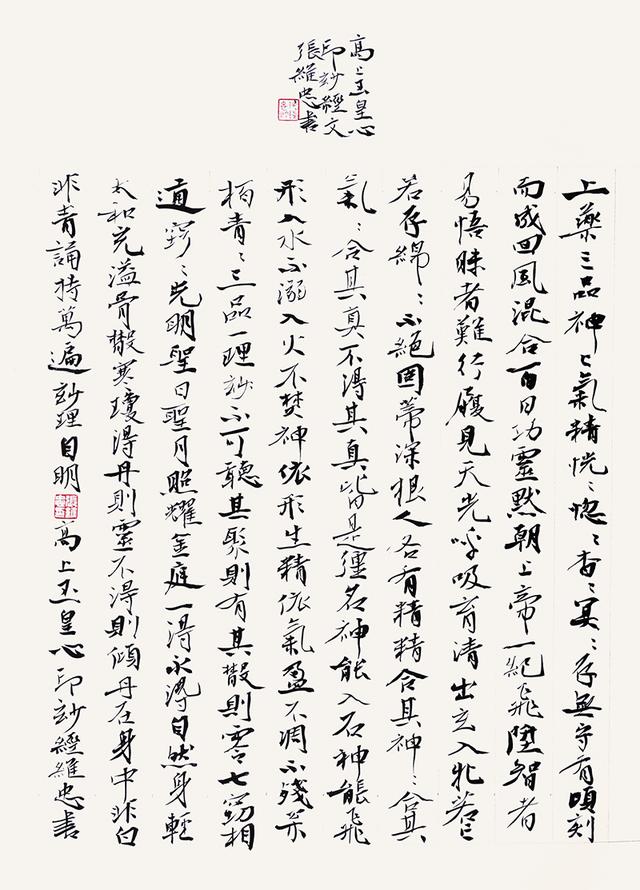 高上玉皇心
印妙經文
張維忠書
上藥三品神与氣精恍〻惚〻杳〻冥〻存無守有頃刻
而成回風混合百日功靈默朝上帝一紀飛陞智者
易悟昧者難行履見天光呼吸育清出玄入牝若亡
若存綿〻不絕固蒂深根人各有精精合其神〻合其
氣〻合其真不得其真皆是彊名神能入石神能飛
形入水不溺入火不焚神依形生精依氣盈不凋不殘枀
柏青〻三品一理妙不可聽其聚則有其散則零七竅相
通竅〻光明聖日聖月照耀金庭一得永得自然身輕
太和充溢骨散寒瓊得丹則靈不得則傾丹在身中非白
非青誦持萬遍妙理自明 高上玉皇心印妙經維忠書